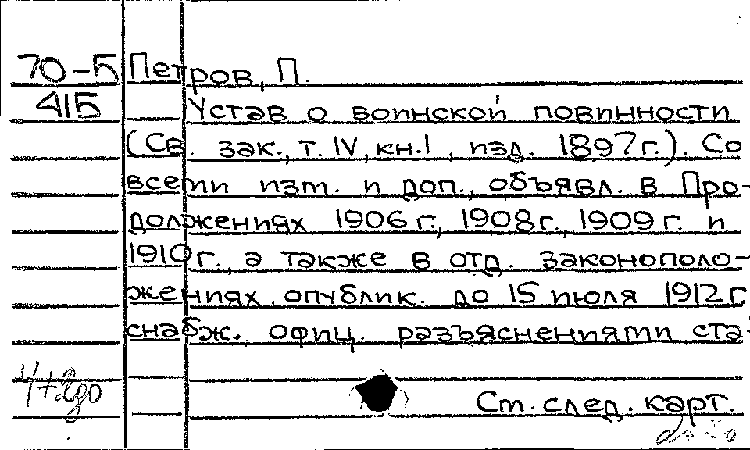 70-5 Петров, П.
415 Устав о воинской повинности
(Св. зак., т. IV, кн. I, изд. 1897 г.). Со
всеми изм. и доп., объявл. в Про-
должениях 1906 г., 1908 г., 1909 г. и
1910 г., а также в отд. законополо-
жениях, опублик. до 15 июля 1912 г.
снабж. офиц. разъяснениями ста-
См. след. карт.